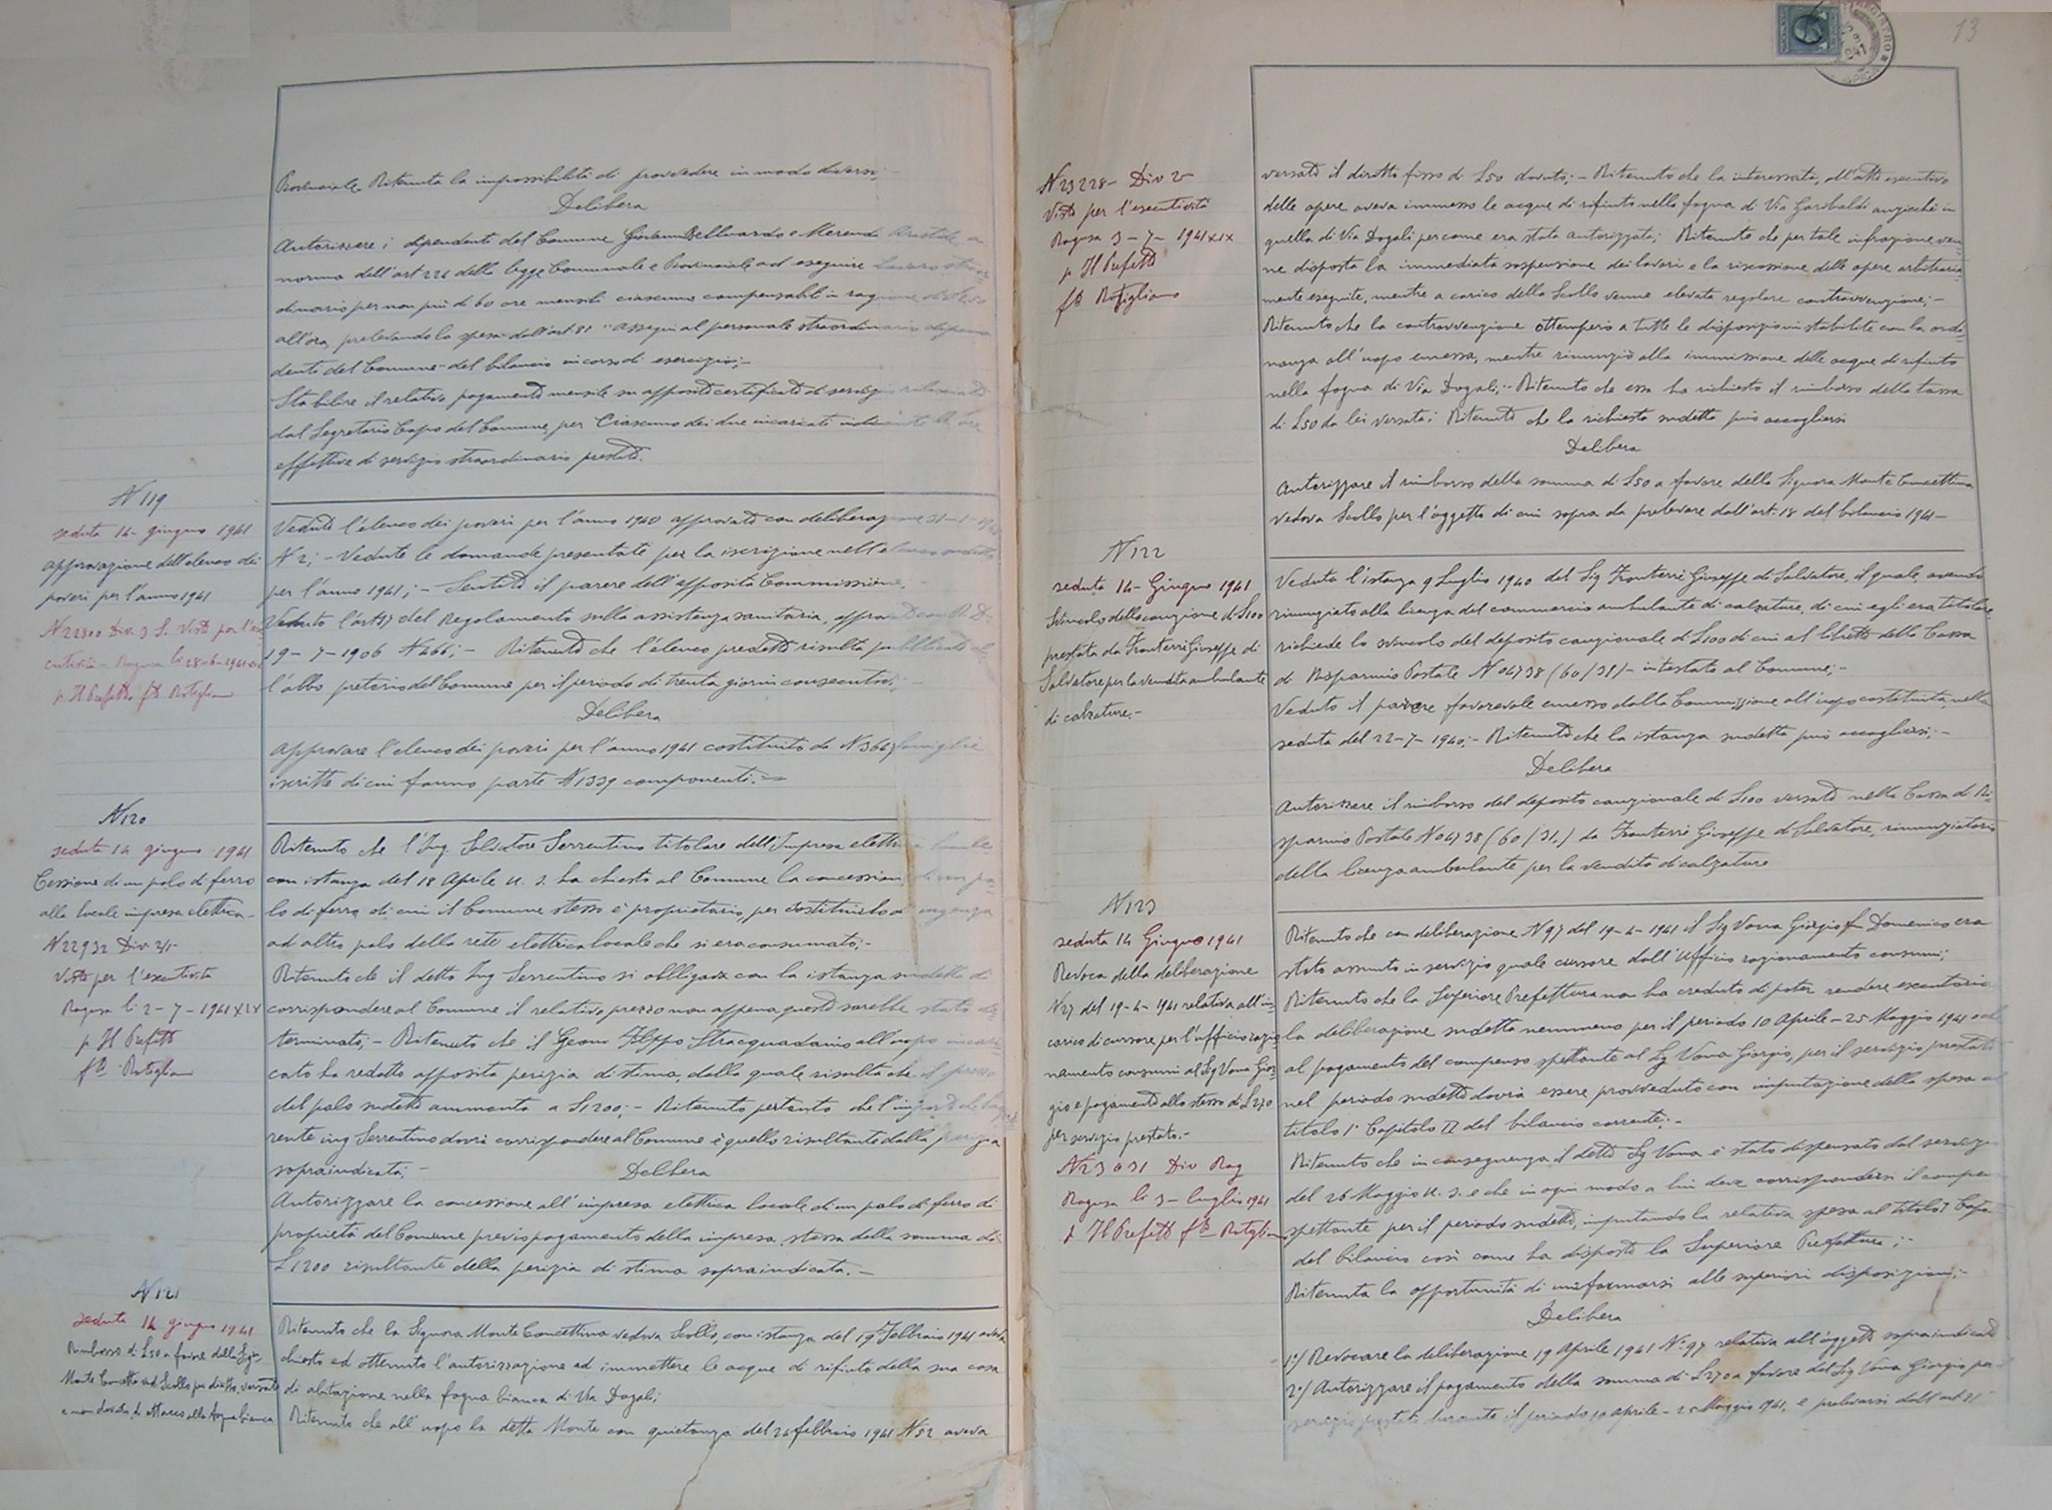 Provinciale. Ritenuta la impossibilità di provvedere in modo diverso;-
Delibera
Autorizzare i dipendenti del Comune Giovanni Belluardo e Merenda
norma dell'art 226 della legge Comunale e Provinciale ad eseguire lavoro straor
dinario per non più di 60 ore mensili ciascuno compensabili in ragione di
all'ora, prelevando la spesa dall'art. 81 "assegni al personale straordinario dipen
dente del Comune" del bilancio in corso di esercizio;-
Stabilire il relativo pagamento mensile su apposito certificato di servizio rilasciato
dal Segretario Capo del Comune, per ciascuno dei due incaricati indicante le ore
effettive di servizio straordinario prestato.
N 119
seduta 14- giugno 1941
approvazione dell'elenco dei
poveri per l'anno 1941
N 22800 Div. 3 S. Visto per l'ese
cutività - Ragusa li 28-6-1941
p. Il Prefetto fto Rotigliano
Veduto l'elenco dei poveri per l'anno 1940 approvato con deliberazione 31-1-
N 2; - Vedute le domande presentate per la iscrizione nell'elenco suddetto
per l'anno 1941; - Sentito il parere dell'apposita Commissione;-
Veduto l'art del Regolamento sulla assistenza sanitaria, approvato con R.D.
19-7-1906 N 466; - Ritenuto che l'elenco predetto risulta pubblicato al
l'albo pretorio del Comune per il periodo di trenta giorni consecutivi;-
Delibera
approvare l'elenco dei poveri per l'anno 1941 costituito da N 366 famiglie
iscritte di cui fanno parte N 1339 componenti.
N 120
seduta 14 giugno 1941
Cessione di un palo di ferro
alla locale impresa elettrica-
N 22932 Div 2/1-
Visto per l'esecutività
Ragusa li 2-7-1941 XIX
p. Il Prefetto
fto Rotigliano
Ritenuto che l'Ing. Salvatore Sorrentino titolare dell'Impresa elettrica locale,
con istanza del 18 Aprile u. s. ha chiesto al Comune la concessione di un pa-
lo di ferro di cui il Comune stesso è proprietario, per sostituirlo d'urgenza
ad altro palo della rete elettrica locale che si era consumato;-
Ritenuto che il detto Ing Sorrentino si obbligava con la istanza sudetta di
corrispondere al Comune il relativo prezzo non appena questo sarebbe stato de-
terminato; - Ritenuto che il Geom Filippo Stracquadanio all'uopo incari-
cato ha redatto apposita perizia di stima, dalla quale risulta che il prezzo
del palo sudetto ammonta a £1200; - Ritenuto pertanto che l'importo che
rente ing Sorrentino dovrà corrispondere al Comune è quello risultante dalla perizia
sopraindicata;- Delibera
Autorizzare la concessione all'impresa elettrica locale di un palo di ferro di
proprietà del Comune previo pagamento della impresa stessa della somma di
£1200 risultante della perizia di stima sopraindicata.-
N 121
seduta 14 giugno 1941
Rimborso di £50 a favore della Sig.
Monte Concetta ved. Scollo pei diritto, versato
e non dovuto, di attacco alla fogna bianca
Ritenuto che la Signora Monte Concettina vedova Scollo, con istanza del 19 Febbraio 1941 aveva
chiesto ed ottenuto l'autorizzazione ad immettere le acque di rifiuto della sua casa
di abitazione nella fogna bianca di Via Dogali;
Ritenuto che all'uopo la detta Monte con quietanza del 24 febbraio 1941 N 52 aveva
13
N 23228- Div 2-
Visto per l'esecutività
Ragusa 3-7-1941 XIX
p. Il Prefetto
fto Rotigliano
versato il diritto fisso di £50 dovuto; - Ritenuto che la interessata, all'atto esecutivo
delle opere aveva immesso le acque di rifiuto nella fogna di Via Garibaldi anzicché in
quella di Via Dogali per come era stata autorizzata; Ritenuto che per tale infrazione ven-
ne disposta la immediata sospensione dei lavori e la rimozione delle opere arbitraria-
mente eseguite, mentre a carico della Scollo venne elevata regolare contravvenzione;-
Ritenuto che la contravvenzione ottemperò a tutte le disposizioni stabilite con la ordi-
nanza all'uopo emessa, mentre rinunziò alla immissione delle acque di rifiuto
nella fogna di Via Dogali; - Ritenuto che essa ha richiesto il rimborso della tassa
di £50 da lei versata; Ritenuto che la richiesta sudetta può accogliersi
Delibera
Autorizzare il rimborso della somma di £50 a favore della Signora Monte Concettina
vedova Scollo per l'oggetto di cui sopra da prelevare dall'art. 18 del bilancio 1941-
N 122
seduta 14- Giugno 1941
Svincolo della cauzione di £100
prestata da Frontierrè Giuseppe di
Salvatore per la vendita ambulante
di calzature.-
Veduta l'istanza 9 Luglio 1940 del Sig Frontierrè Giuseppe di Salvatore, il quale, avendo
rinunziato alla licenza del commercio ambulante di calzature, di cui egli era titolare,
richiede lo svincolo del deposito cauzionale di £100 di cui al libretto della Cassa
di Risparmio Postale N 04738 (60/31)- intestato al Comune;-
Veduto il parere favorevole emesso dalla Commissione all'uopo costituita nella
seduta del 22-7-1940; - Ritenuto che la istanza sudetta può accogliersi;-
Delibera
Autorizzare il rimborso del deposito cauzionale di £100 versato nella Cassa di Ri-
sparmio Postale N 04738 (60/31.) da Frontierrè Giuseppe di Salvatore, rinunziatario
della licenza ambulante per la vendita di calzature
N 123
seduta 14 Giugno 1941
Revoca della deliberazione
N 97 del 19-4-1941 relativa all'in-
carico di cursore per l'ufficio razio-
namento consumi al Sig Vona Gior-
gio e pagamento allo stesso di £270
per servizio prestato.-
N 23031 Div Rag
Ragusa li 3- luglio 1941
p Il Prefetto fto Rotigliano
Ritenuto che con deliberazione N 97 del 19-4-1941 il Sig Vona Giorgio fu Domenico era
stato assunto in servizio quale cursore dall'Ufficio razionamento consumi;
Ritenuto che la Superiore Prefettura non ha creduto di poter rendere esecutoria
la deliberazione sudetta nemmeno per il periodo 10 Aprile - 25 Maggio 1941 e che
al pagamento del compenso spettante al Sig Vona Giorgio, per il servizio prestato
nel periodo sudetto dovrà essere provveduto con imputazione della spesa al
titolo 1° Capitolo II del bilancio corrente;-
Ritenuto che in conseguenza il detto Sig Vona è stato dispensato dal servizio
del 26 Maggio u. s. e che in ogni modo a lui deve corrispondersi il compenso
spettante per il periodo sudetto, imputando la relativa spesa al titolo I Capo
del bilancio così come ha disposto la Superiore Prefettura;-
Ritenuta la opportunità di uniformarsi alle superiori disposizioni;-
Delibera
1°/ Revocare la deliberazione 19 Aprile 1941 N° 97 relativa all'oggetto sopraindicato
2°/ Autorizzare il pagamento della somma di £270 a favore del Sig Vona Giorgio per
servizio prestato durante il periodo 10 Aprile - 25 Maggio 1941, e prelevarsi dall'art 81